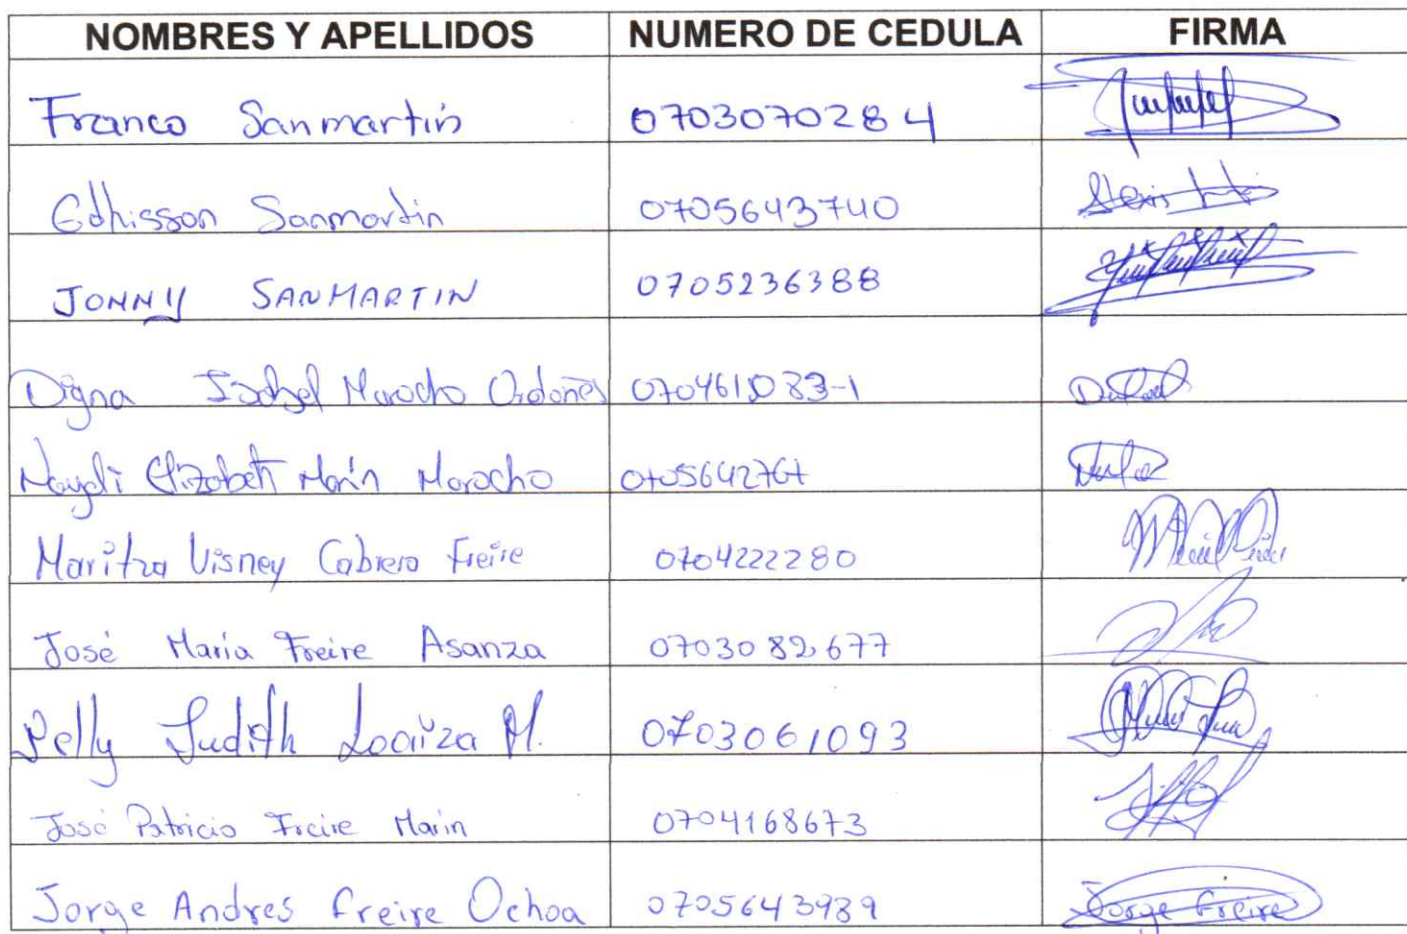 NOMBRES Y APELLIDOS NUMERO DE CEDULA FIRMA
Franco Sanmartin 0703070284
Edhisson Sanmartin 0705643740
JONNY SANMARTIN 0705236388
Digna Isabel Morocho Ordoñes 070461083-1
Naydi Elizabeth Marin Morocho 0705642767
Maritza Visney Cabrera Freire 0704222280
José Maria Freire Asanza 0703082677
Nelly Judith Loaiza M. 0703061093
José Patricio Freire Marin 0704168673
Jorge Andres Freire Ochoa 0705643989 Jorge Freire